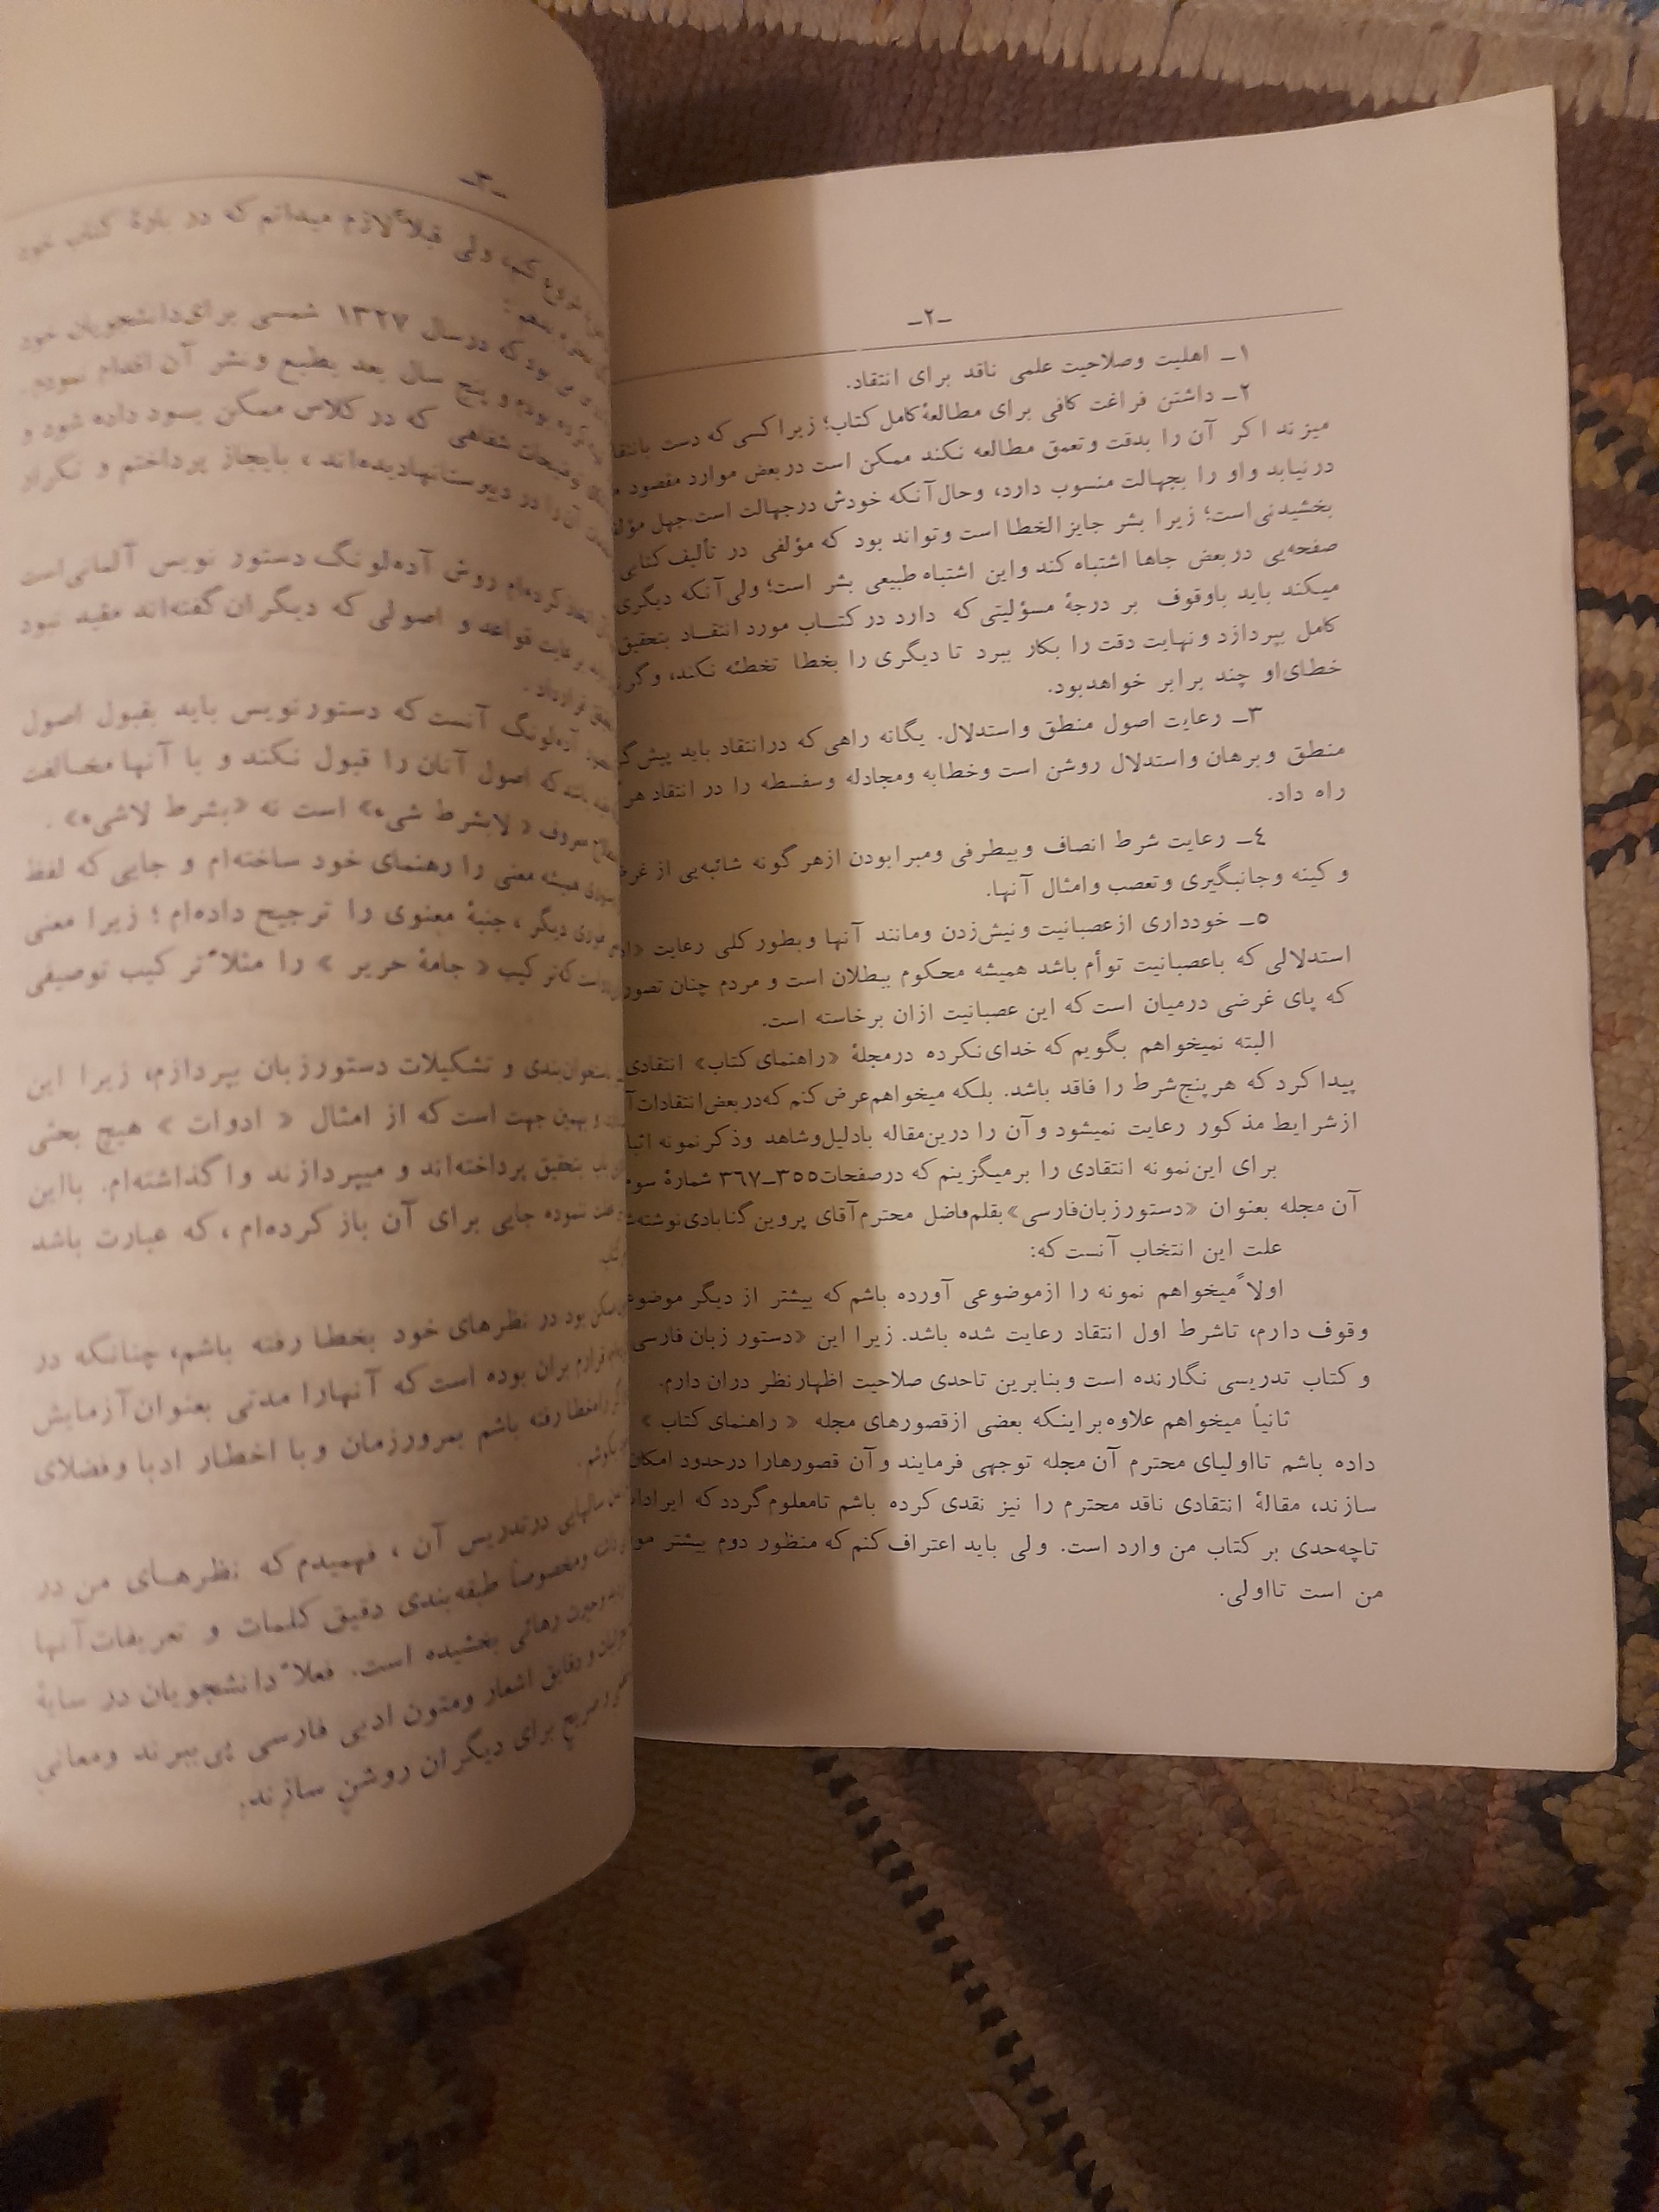 -۲-
۱- اهلیت وصلاحیت علمی ناقد برای انتقاد.
۲- داشتن فراغت کافی برای مطالعهٔ کامل کتاب؛ زیرا کسی که دست بانتقا
میزند اگر آن را بدقت وتعمق مطالعه نکند ممکن است دربعض موارد مقصود
درنیابد واو را بجهالت منسوب دارد، وحال آنکه خودش درجهالت است.جهل مؤلف
بخشیدنی است؛ زیرا بشر جایزالخطا است وتواند بود که مؤلفی در تألیف کتابی
صفحه‌یی دربعض جاها اشتباه کند واین اشتباه طبیعی بشر است؛ ولی آنکه دیگری
میکند باید باوقوف بر درجهٔ مسؤلیتی که دارد در کتاب مورد انتقاد بتحقیق
کامل بپردازد ونهایت دقت را بکار ببرد تا دیگری را بخطا تخطئه نکند، وگر
خطای‌او چند برابر خواهدبود.
۳- رعایت اصول منطق واستدلال. یگانه راهی که درانتقاد باید پیش
منطق وبرهان واستدلال روشن است وخطابه ومجادله وسفسطه را در انتقاد هر
راه داد.
٤- رعایت شرط انصاف وبیطرفی ومبرابودن ازهر گونه شائبه‌یی از غرض
و کینه وجانبگیری وتعصب وامثال آنها.
۵- خودداری ازعصبانیت ونیش‌زدن ومانند آنها وبطورکلی رعایت
استدلالی که باعصبانیت توأم باشد همیشه محکوم ببطلان است و مردم چنان تصور
که پای غرضی درمیان است که این عصبانیت ازان برخاسته است.
البته نمیخواهم بگویم که خدای‌نکرده درمجلهٔ «راهنمای کتاب» انتقادی
پیدا کرد که هر پنج شرط را فاقد باشد. بلکه میخواهم عرض کنم که در بعض انتقادات
ازشرایط مذکور رعایت نمیشود وآن را درین‌مقاله بادلیل‌وشاهد وذکر نمونه
برای این‌نمونه انتقادی را برمیگزینم که درصفحات۳۵۵-۳۶۷ شمارهٔ سوم
آن مجله بعنوان «دستورزبان‌فارسی»بقلم‌فاضل محترم‌آقای پروین گنابادی‌نوشته
علت این انتخاب آنست که:
اولاً میخواهم نمونه را ازموضوعی آورده باشم که بیشتر از دیگر موضوع
وقوف دارم، تاشرط اول انتقاد رعایت شده باشد. زیرا این «دستور زبان فارسی
و کتاب تدریسی نگارنده است وبنابرین تاحدی صلاحیت اظهارنظر دران دارم.
ثانیاً میخواهم علاوه براینکه بعضی ازقصورهای مجله « راهنمای کتاب »
داده باشم تااولیای محترم آن مجله توجهی فرمایند وآن قصورهارا درحدود امکان
سازند، مقالهٔ انتقادی ناقد محترم را نیز نقدی کرده باشم تامعلوم گردد که ایرادا
تاچه‌حدی بر کتاب من وارد است. ولی باید اعتراف کنم که منظور دوم بیشتر
من است تااولی.
-۳-
کنم، ولی قبلاً لازم میدانم که در بارهٔ کتاب خود
بود که درسال ۱۳۲۷ شمسی برای‌دانشجویان خود
کرده بودم و پنج سال بعد بطبع ونشر آن اقدام نمودم.
توضیحات شفاهی که در کلاس ممکن بود داده شود و
آن را در دبیرستانهادیده‌اند، بایجاز پرداختم و تکرار
کرده‌ام روش آده‌لونگ دستور نویس آلمانی است
رعایت قواعد و اصولی که دیگران گفته‌اند مقید نبود
قرارداد.
آده‌لونگ آنست که دستورنویس باید بقبول اصول
باشد که اصول آنان را قبول نکند و با آنها مخالفت
معروف «لابشرط شیء» است نه «بشرط لاشیء».
همیشه معنی را رهنمای خود ساخته‌ام و جایی که لفظ
دیگر، جنبهٔ معنوی را ترجیح داده‌ام؛ زیرا معنی
ترکیب « جامهٔ حریر » را مثلاً ترکیب توصیفی
بعنوان‌بندی و تشکیلات دستورزبان بپردازم، زیرا این
و بهمین جهت است که از امثال « ادوات » هیچ بحثی
بتحقیق پرداخته‌اند و میپردازند واگذاشته‌ام. بااین
نموده جایی برای آن باز کرده‌ام، که عبارت باشد
ممکن بود در نظرهای خود بخطا رفته باشم، چنانکه در
بران بوده است که آنهارا مدتی بعنوان‌آزمایش
بخطا رفته باشم بمرورزمان و با اخطار ادبا وفضلای
بکوشم.
سالهایی درتدریس آن، فهمیدم که نظرهای من در
ومخصوصاً طبقه‌بندی دقیق کلمات و تعریفات آنها
رهائی بخشیده است. فعلاً دانشجویان در سایهٔ
و دقایق اشعار ومتون ادبی فارسی پی‌ببرند ومعانی
صریح برای دیگران روشن سازند.